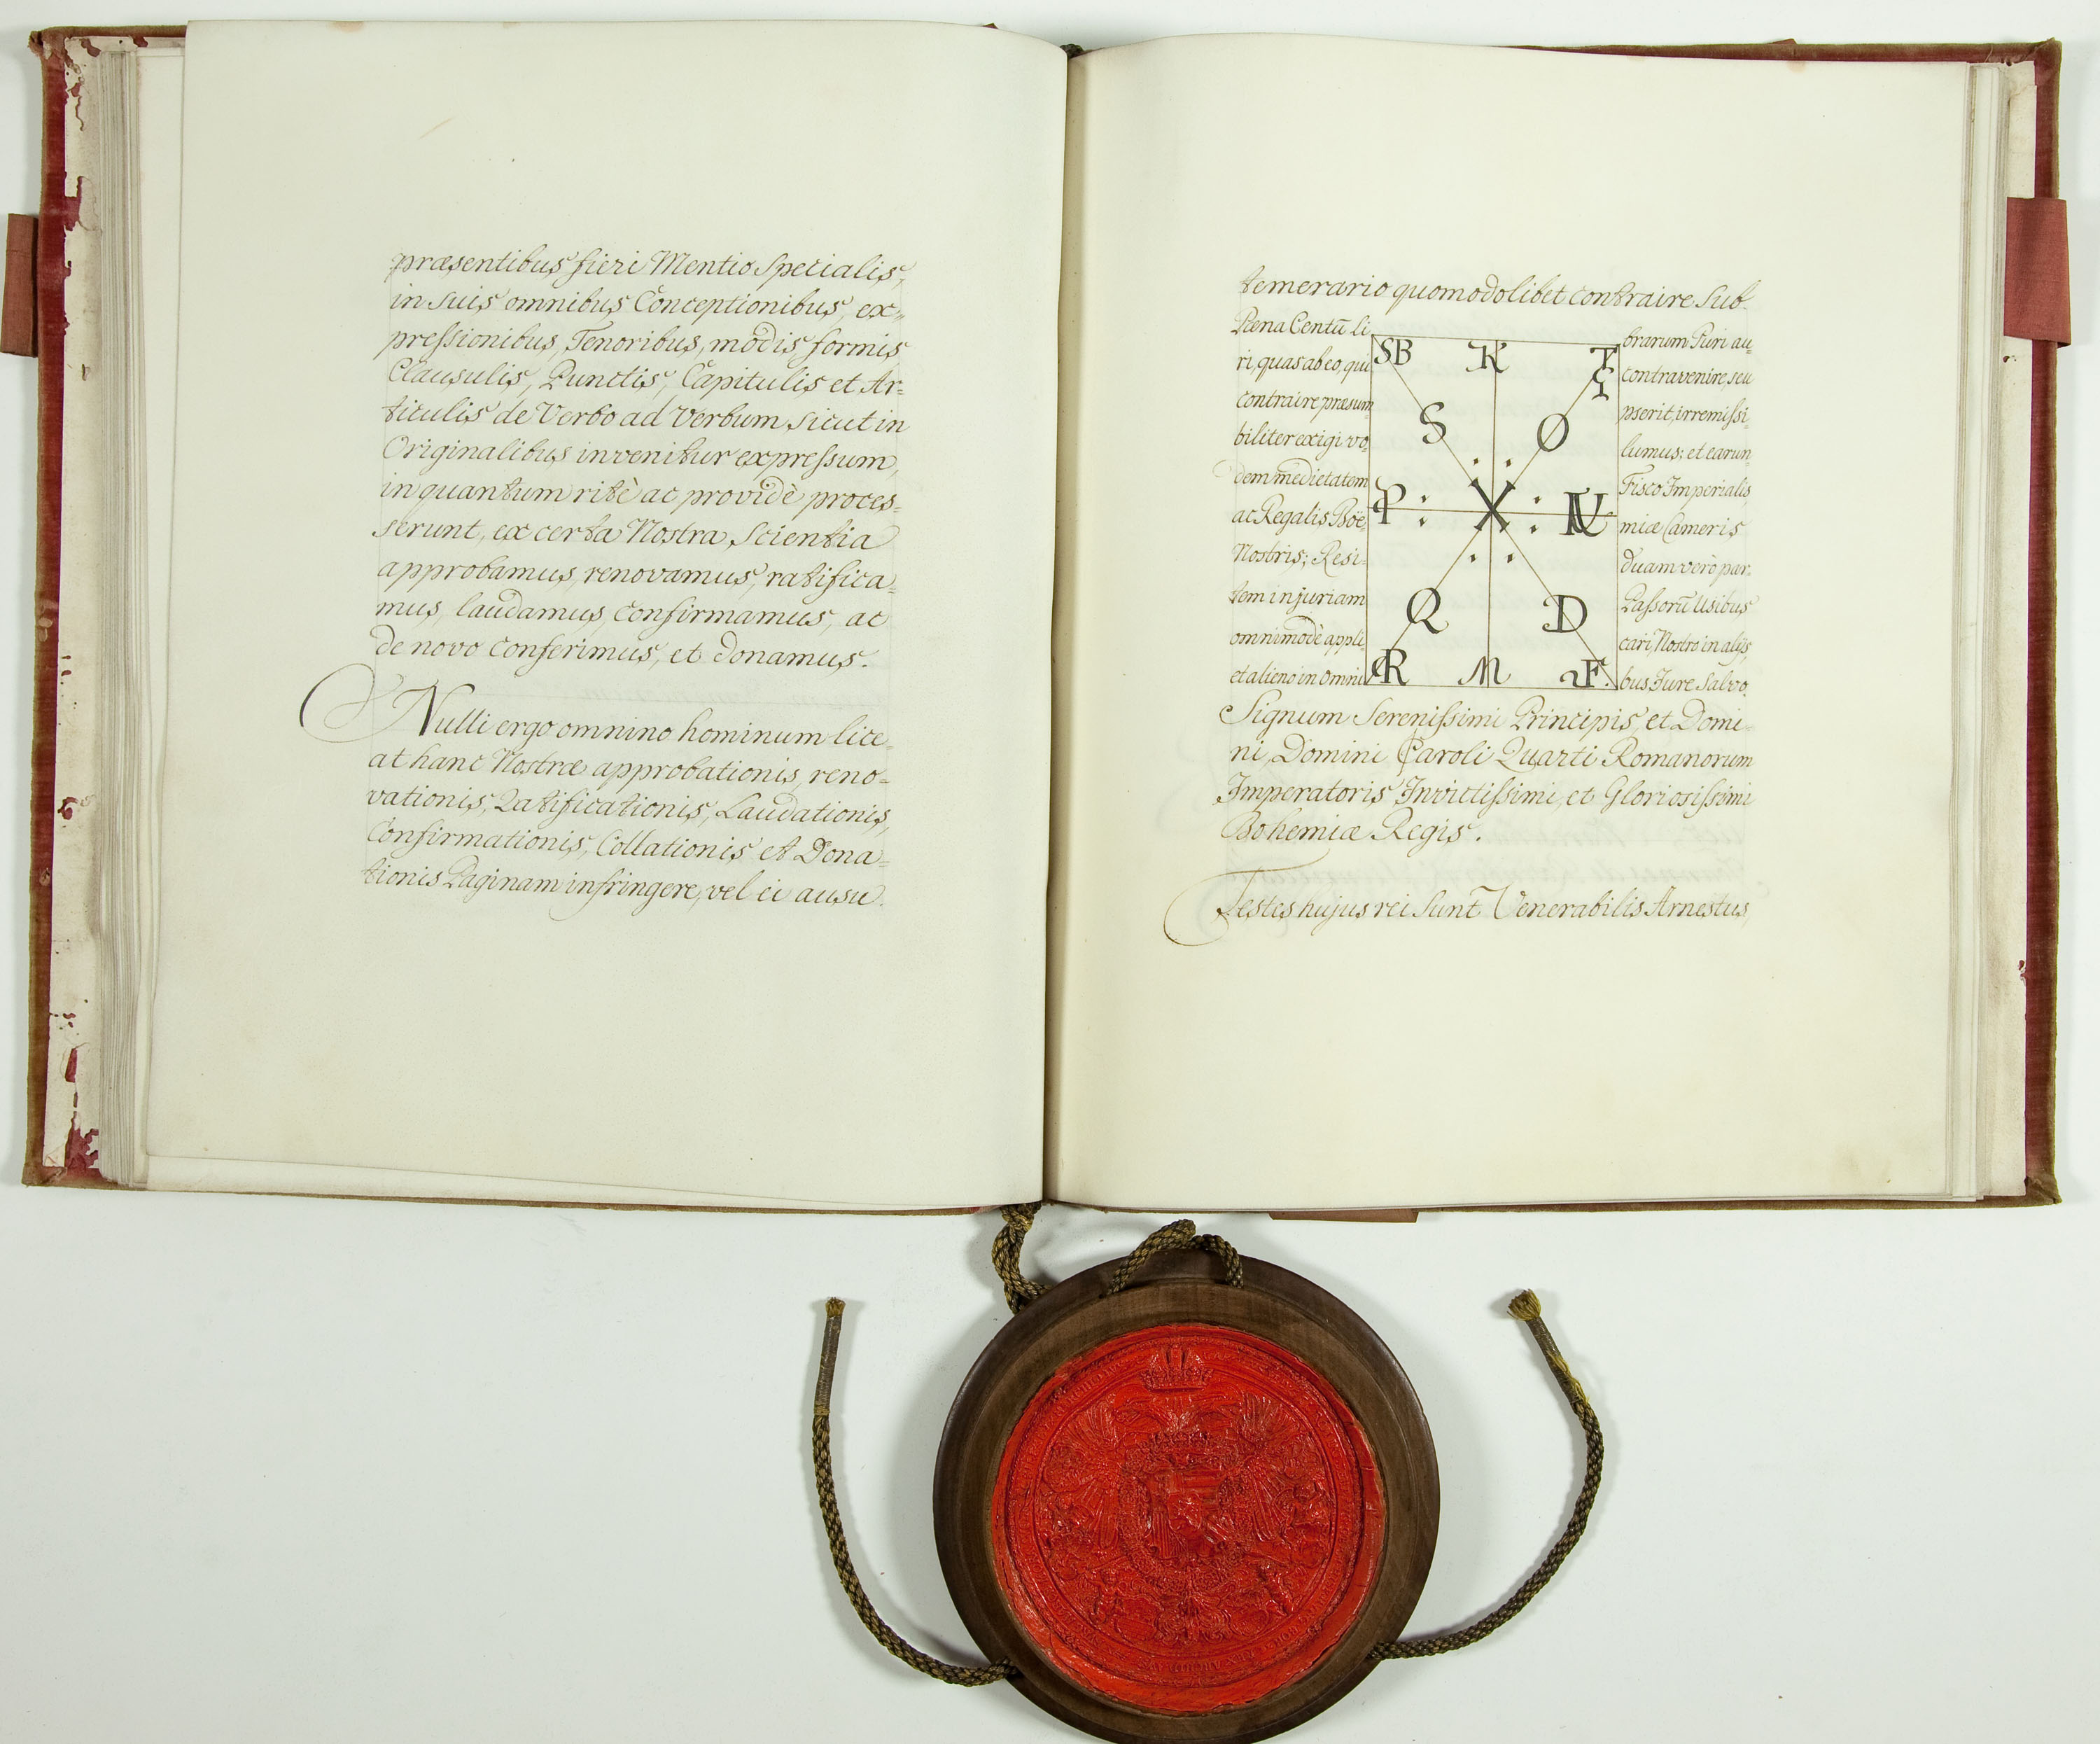 præsentibus fieri Mentio Specialis,
in suis omnibus Conceptionibus, ex=
pressionibus, Tenoribus, modis, formis
Clausulis, Punctis, Capitulis et Ar=
ticulis de Verbo ad Verbum sicut in
Originalibus invenitur expressum,
in quantum ritè ac providè proces=
serunt, ex certa Nostra Scientia
approbamus, renovamus, ratifica=
mus, laudamus, confirmamus, ac
de novo conferimus, et donamus.
Nulli ergo omnino hominum lice=
at hanc Nostræ approbationis, reno=
vationis, Ratificationis, Laudationis,
Confirmationis, Collationis et Dona=
tionis Paginam infringere, vel ei ausu
temerario quomodolibet contraire Sub
Pœna Centū li brarum Puri au=
ri, quas ab eo, qui contravenire, seu
contraire præsum pserit, irremissi=
biliter exigi vo= lumus; et earun=
dem medietatem Fisco Imperialis,
ac Regalis Boë= miæ Cameris
Nostris; Resi= duam verò par=
tem injuriam Passorū Usibus
omnimodè appli= cari, Nostro in alijs,
et alieno in omni= bus Jure salvo.
SB K T
S O
P X N
Q D
R M F
Signum Serenissimi Principis, et Domi=
ni, Domini Caroli Quarti Romanorum
Imperatoris Invictissimi, et Gloriosissimi
Bohemiæ Regis.
Testes hujus rei Sunt Venerabilis Arnestus,